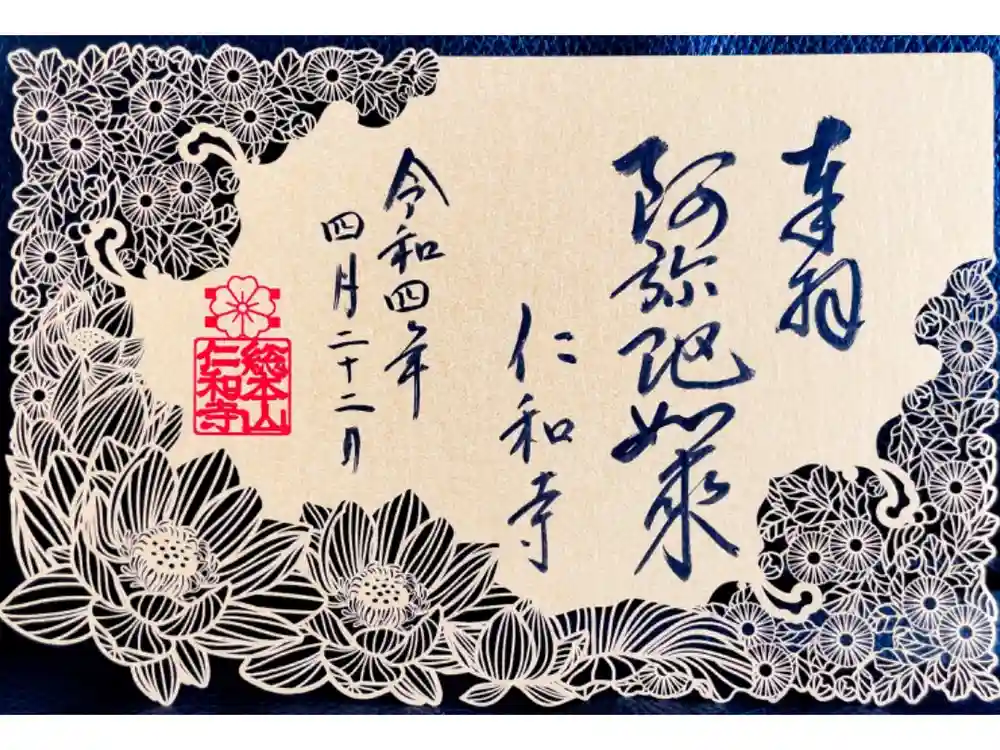 奉拝
阿弥陀如来
仁和寺
令和四年
四月二十二日
総本山
仁和寺